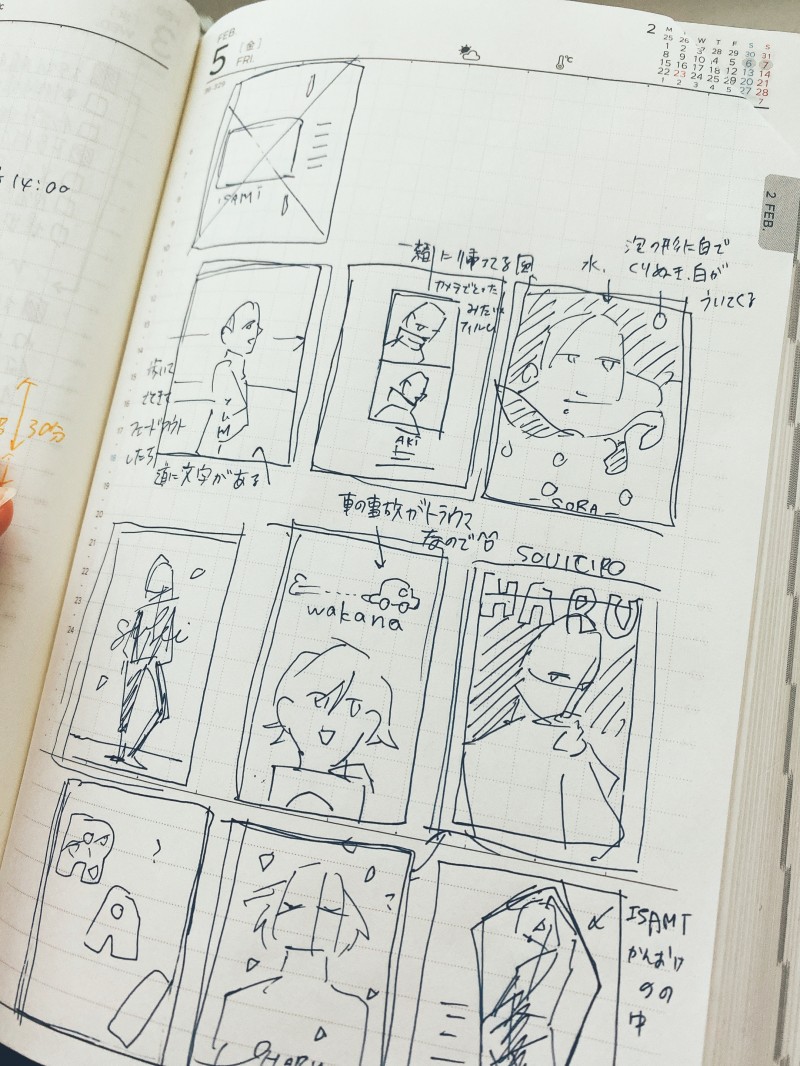 FEB
5
[金]
FRI.
36-329
℃
2
M T W T F S S
25 26 27 28 29 30 31
1 2 3 4 5 6 7
8 9 10 11 12 13 14
15 16 17 18 19 20 21
22 23 24 25 26 27 28
1 2 3 4 5 6 7
2 FEB.
14:00
30分
ISAMI
一緒に帰ってる図
カメラでとった
みたいな
フィルム
水、
泡の形に白で
くりぬき、白が
ういてくる
YUMI
フェードアウト
したら
道に文字がある
AKI
SORA
車の事故がトラウマ
なので
wakana
HARU
?
?
HARU
ISAMI
かんおけ
の中
6
7
8
9
10
11
12
13
14
15
16
17
18
19
20
21
22
23
24